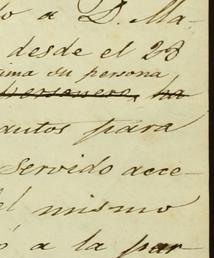 o a D. Ma-
desde el 28
ima su persona
ha
autos para
servido acce-
el mismo
ó a la par-